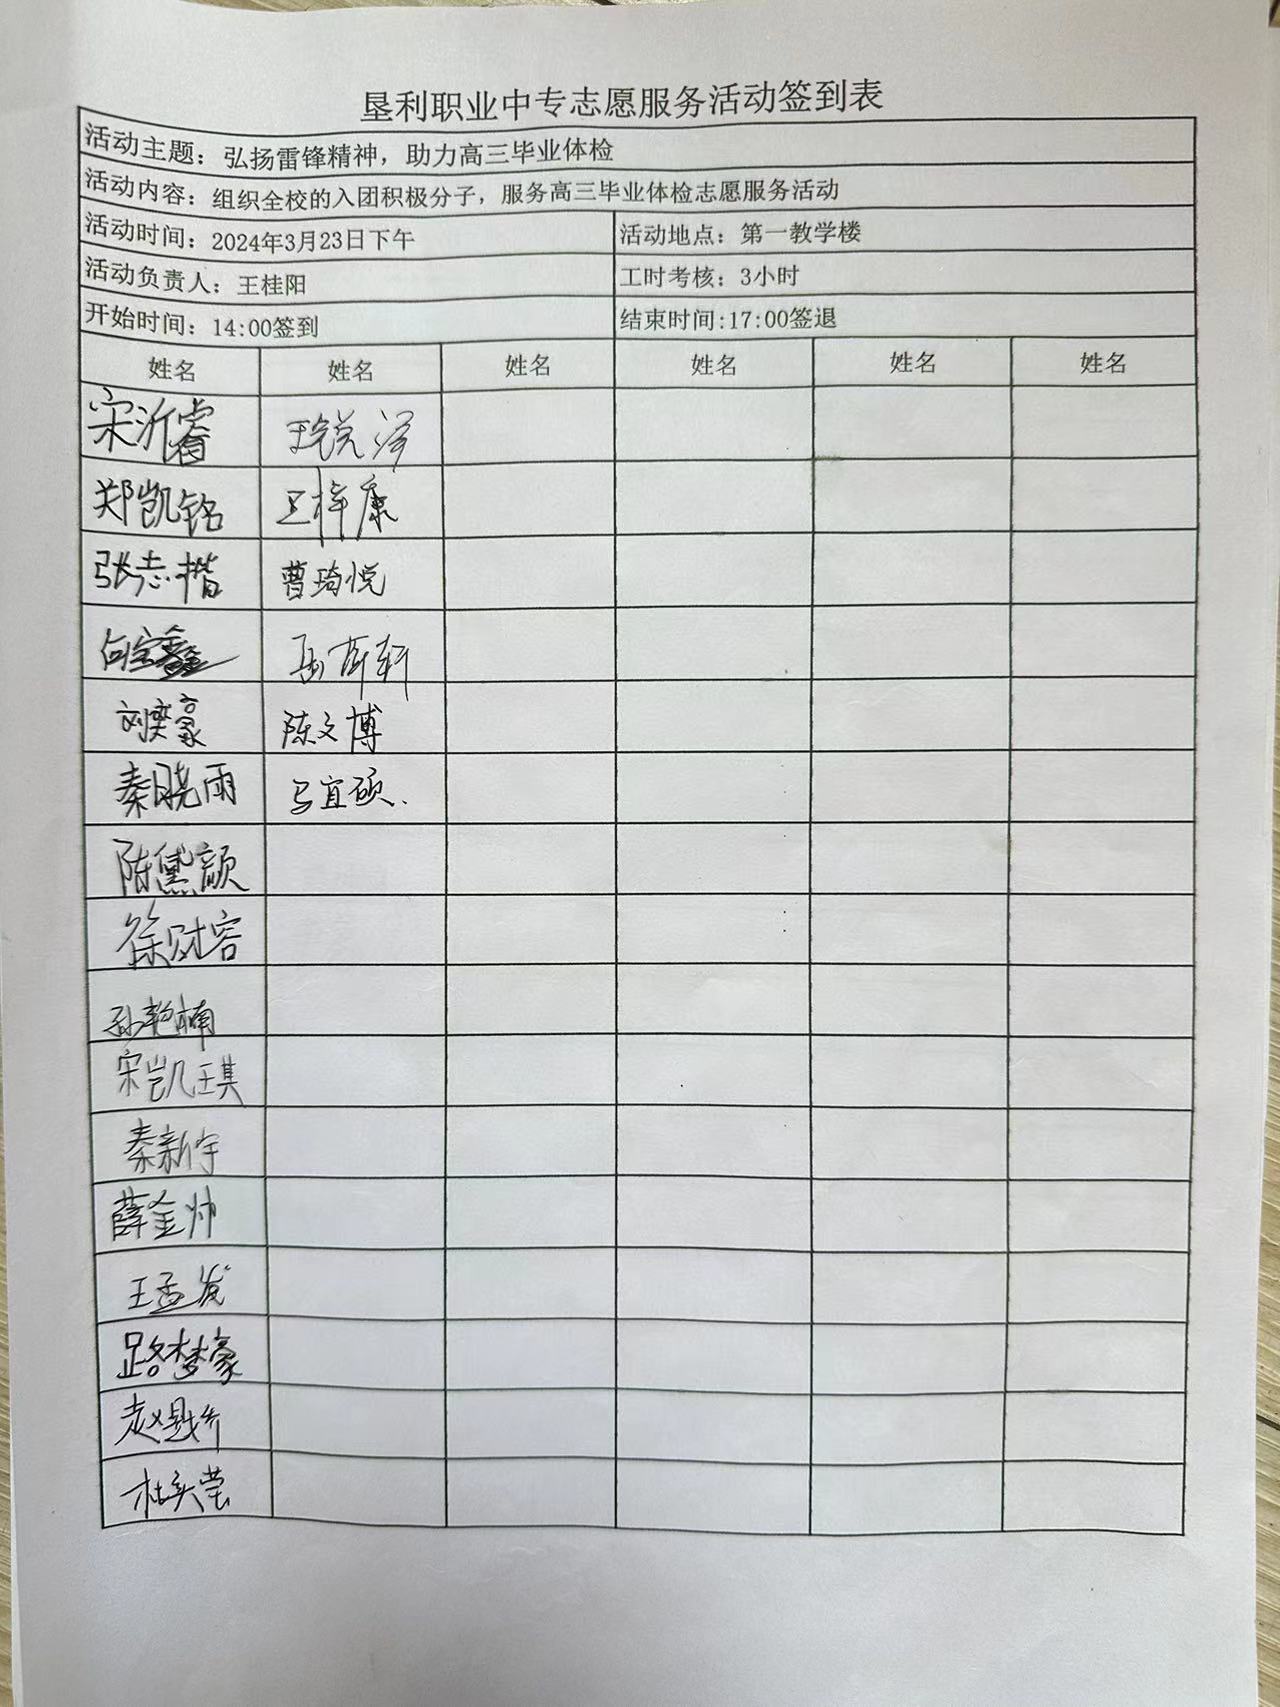 垦利职业中专志愿服务活动签到表
活动主题：弘扬雷锋精神，助力高三毕业体检
活动内容：组织全校的入团积极分子，服务高三毕业体检志愿服务活动
活动时间：2024年3月23日下午 活动地点：第一教学楼
活动负责人：王桂阳 工时考核：3小时
开始时间：14:00签到 结束时间:17:00签退
姓名 姓名 姓名 姓名 姓名 姓名
宋沂睿 王锐泽
郑凯铭 王梓康
张志楷 曹琦悦
陈文博
刘奕豪
秦晓雨 马宜硕
陈黛颜
徐财容
孙艳楠
宋凯琪
秦新宇
薛金帅
王孟发
路梦豪
杜奕莹